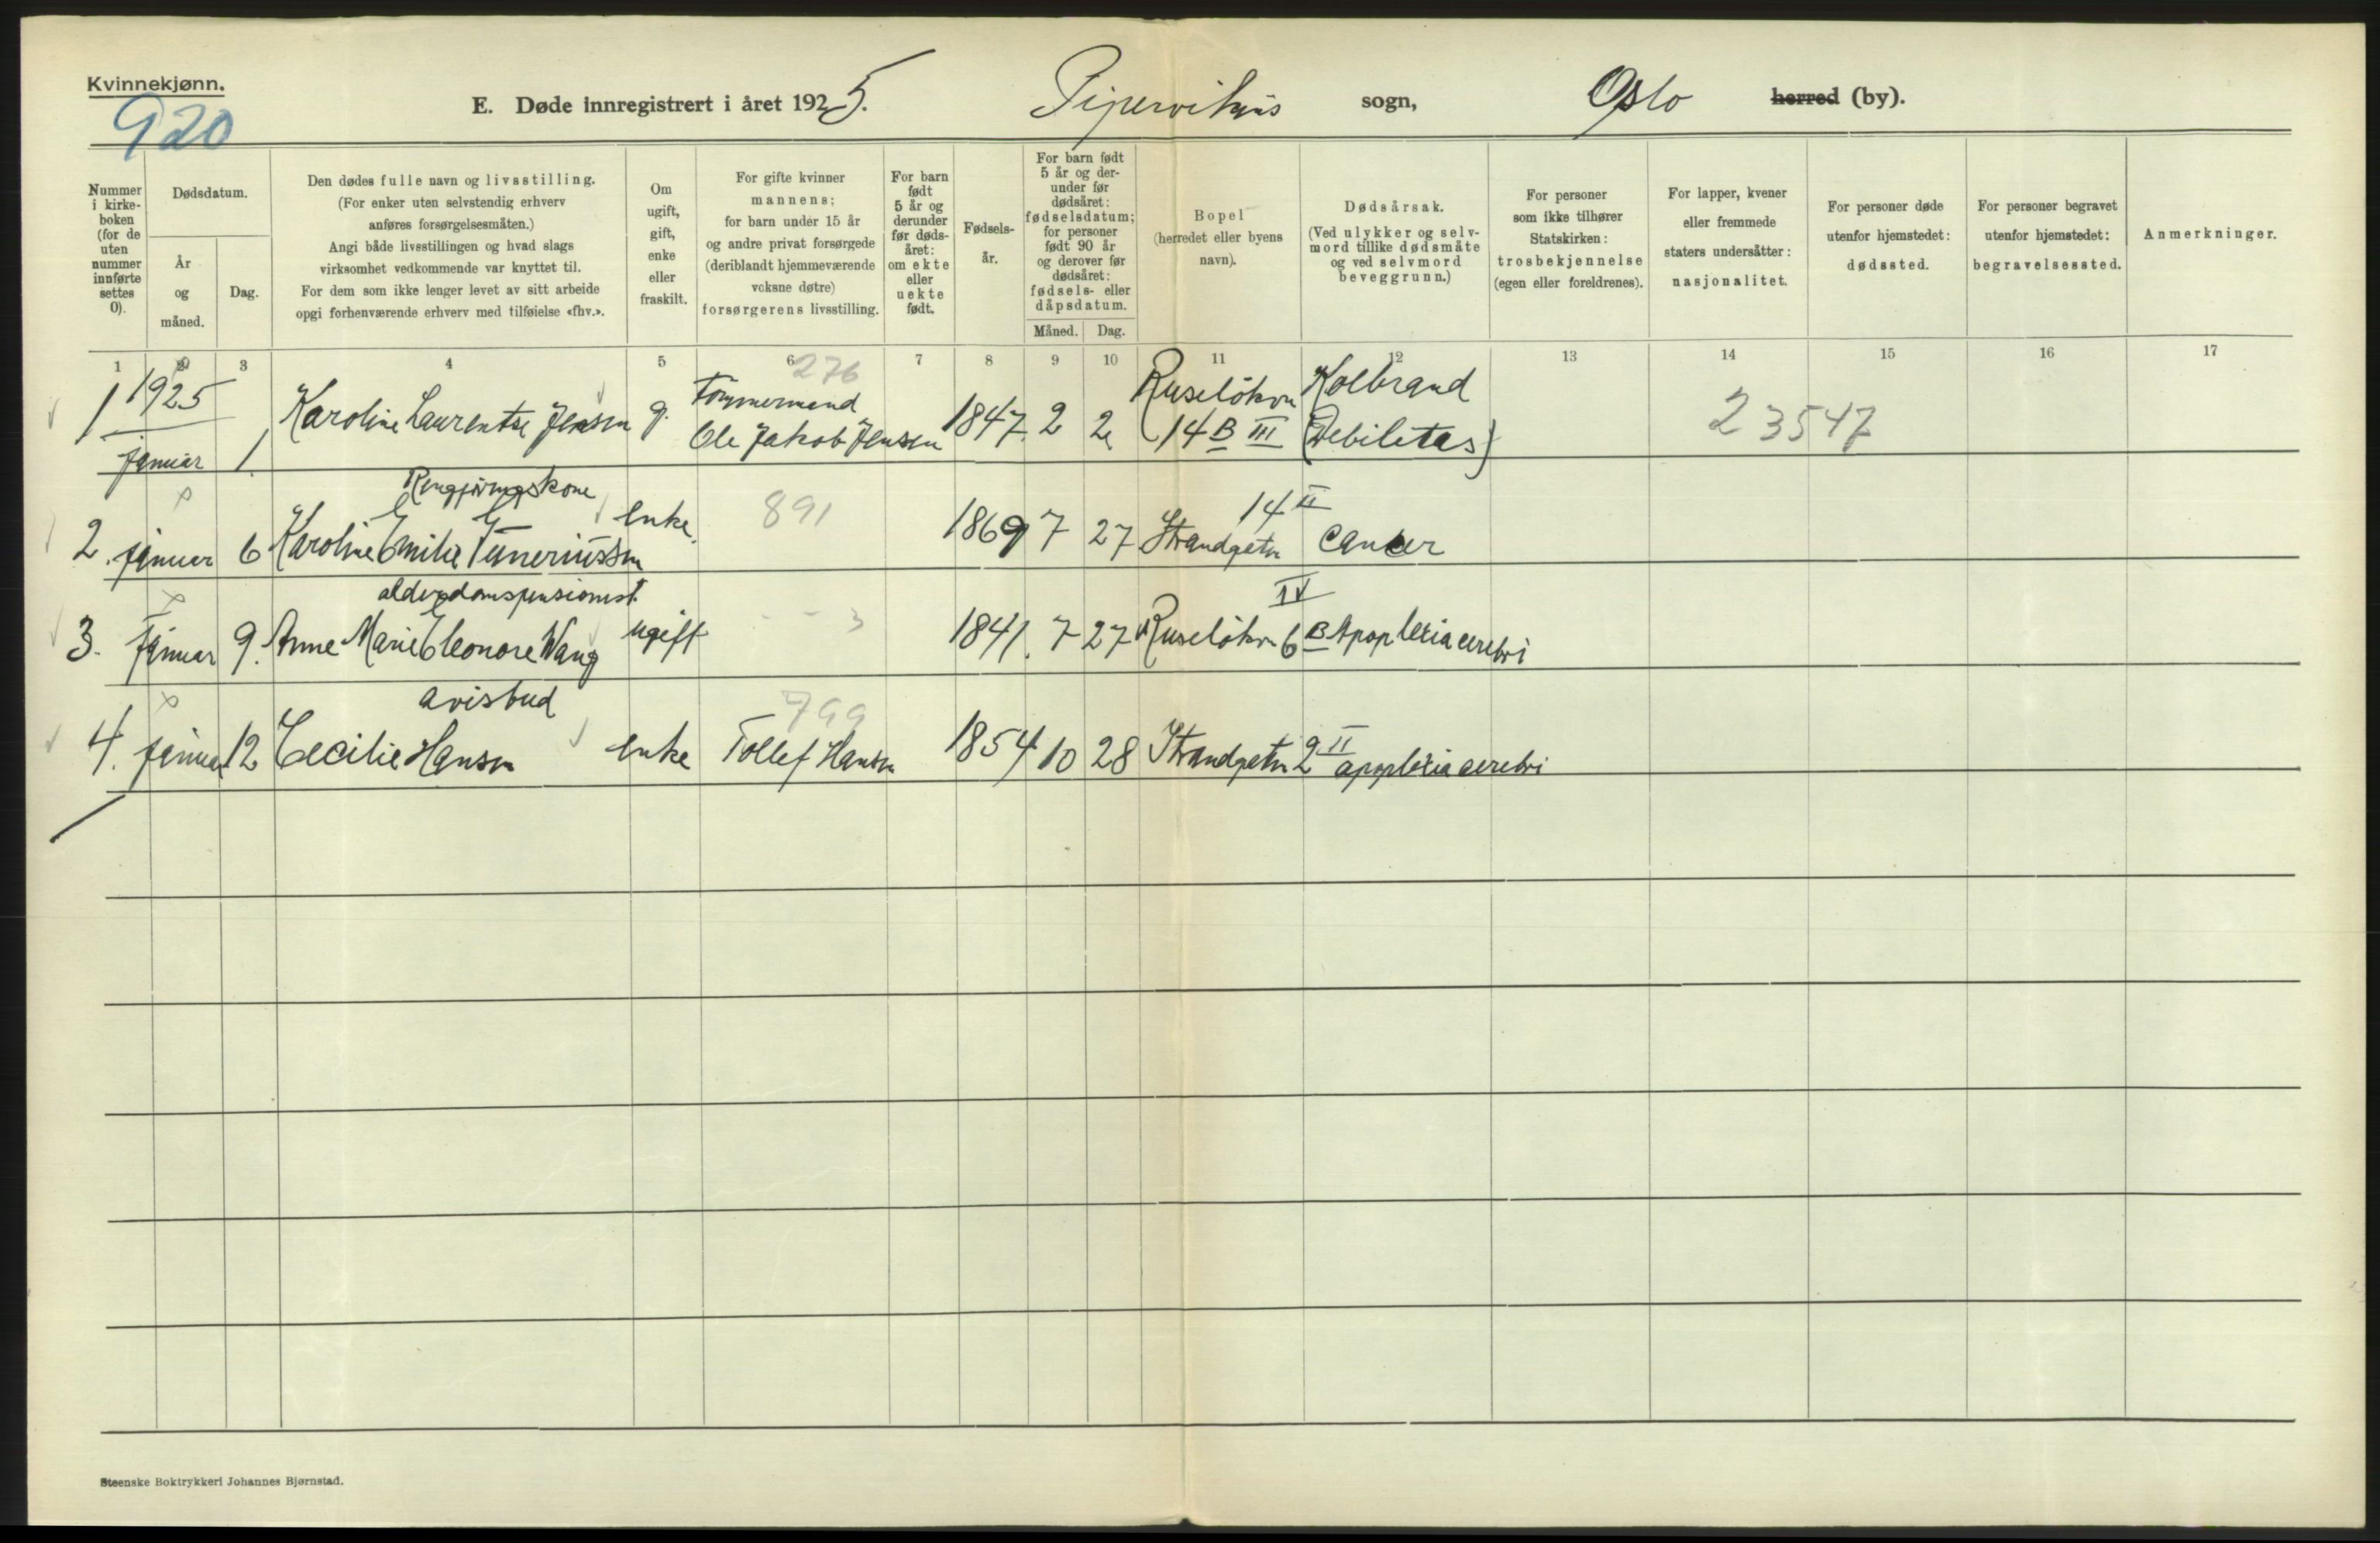 Kvinnekjønn.
920
E. Døde innregistrert i året 1925. Pipervikens sogn, Oslo herred (by).
Nummer i kirke-boken (for de uten nummer innførte settes 0).
Dødsdatum.
År og måned.
Dag.
Den dødes fulle navn og livsstilling.
(For enker uten selvstendig erhverv
anføres forsørgelsesmåten.)
Angi både livsstillingen og hvad slags
virksomhet vedkommende var knyttet til.
For dem som ikke lenger levet av sitt arbeide
opgi forhenværende erhverv med tilføielse «fhv.».
Om ugift, gift, enke eller fraskilt.
For gifte kvinner
mannens;
for barn under 15 år
og andre privat forsørgede
(deriblandt hjemmeværende
voksne døtre)
forsørgerens livsstilling.
For barn født 5 år og derunder før døds-året: om ekte eller uekte født.
Fødsels-år.
For barn født 5 år og der-under før dødsåret: fødselsdatum; for personer født 90 år og derover før dødsåret: fødsels- eller dåpsdatum.
Måned. Dag.
Bopel
(herredet eller byens
navn).
Dødsårsak.
(Ved ulykker og selv-
mord tillike dødsmåte
og ved selvmord
beveggrunn.)
For personer
som ikke tilhører
Statskirken:
trosbekjennelse
(egen eller foreldrenes).
For lapper, kvener
eller fremmede
staters undersåtter:
nasjonalitet.
For personer døde
utenfor hjemstedet:
dødssted.
For personer begravet
utenfor hjemstedet:
begravelsessted.
Anmerkninger.
1 2 3 4 5 6 7 8 9 10 11 12 13 14 15 16 17
276
1 1925 januar 1. Karoline Laurentse Jensen g. Tømmermand Ole Jakob Jensen 1847. 2 2 Ruseløkvn 14 B III Kolbrand (Debilitas)
23547
Rengjøringskone
2. januar 6 Karoline Emilie enke. 891 1869 7 27 Strandgatn 14 II Cancer
alderdomspensionist.
3. januar 9. Anne Marie Eleonore Wang ugift - - 3 1841. 7 27 Ruseløkvn 6 B IV Apoplexia cerebri
avisbud
799
4. januar 12 Cecilie Hansen enke Tollef Hansen 1854 10 28 Strandgatn 2 II apoplexia cerebri
Steenske Boktrykkeri Johannes Bjørnstad.